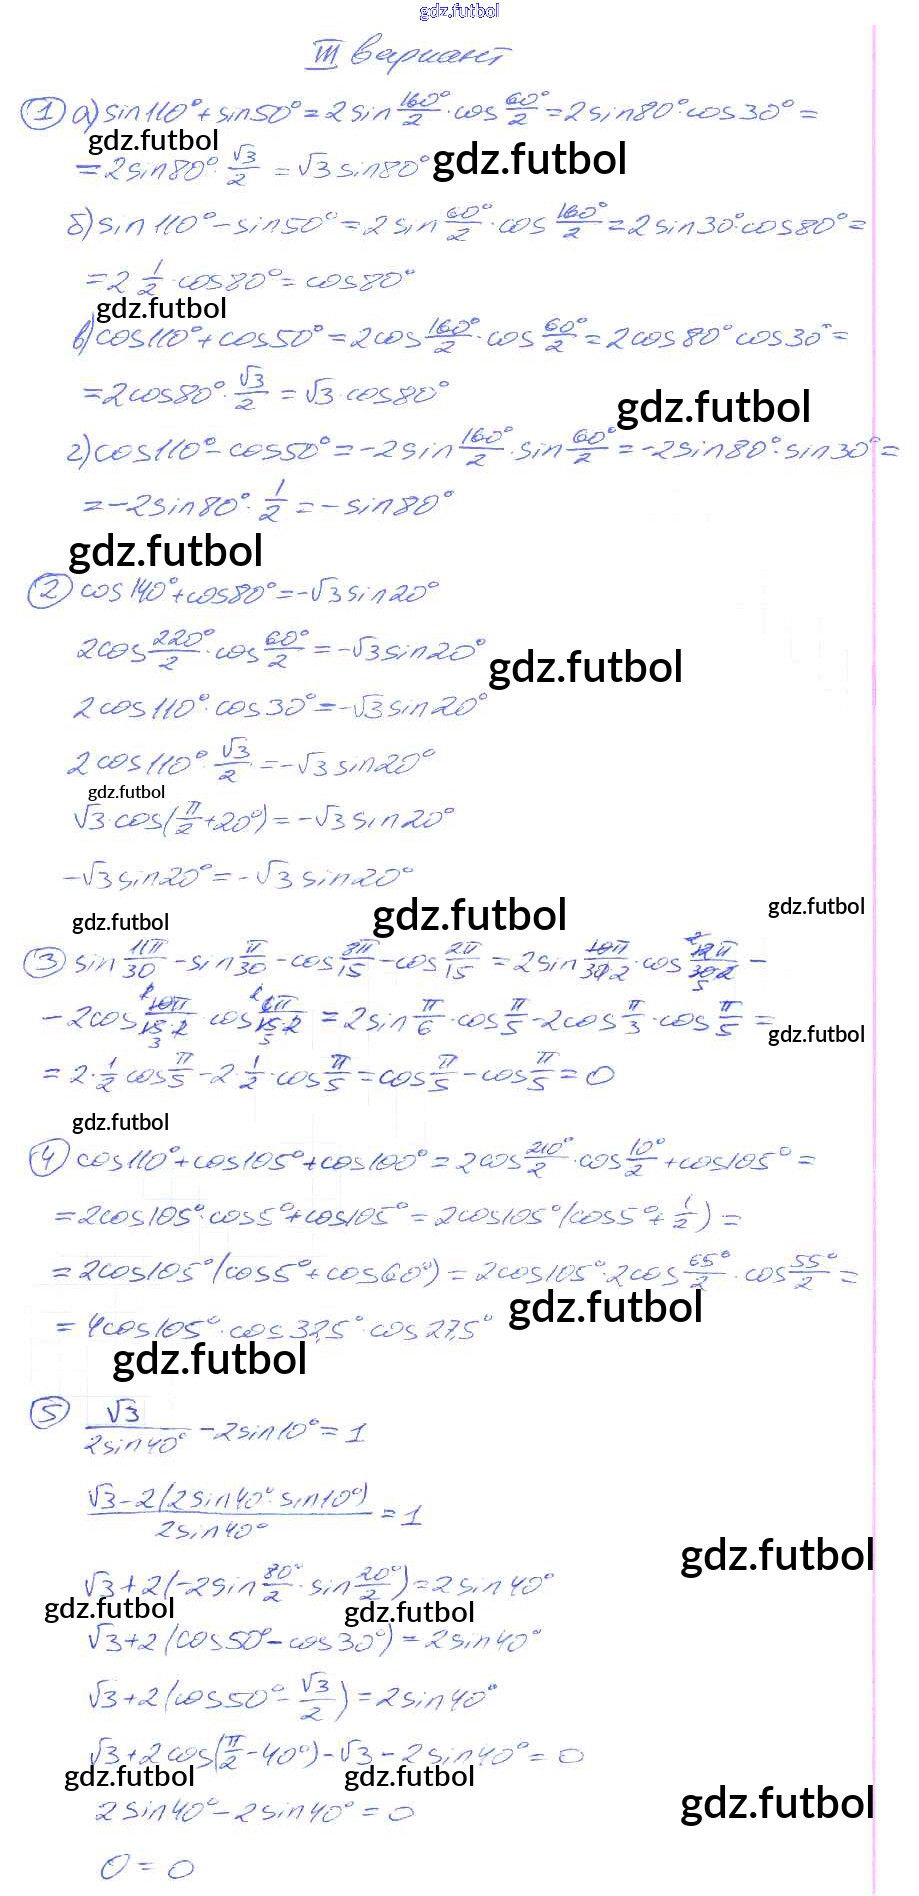 gdz.futbol
III вариант
① а) sin110° + sin50° = 2sin 160°/2 · cos 60°/2 = 2sin80° · cos30° =
gdz.futbol
= 2sin80° · √3/2 = √3 sin80°
gdz.futbol
б) sin110° - sin50° = 2sin 60°/2 · cos 160°/2 = 2sin30° · cos80° =
= 2 1/2 · cos80° = cos80°
gdz.futbol
в) cos110° + cos50° = 2cos 160°/2 · cos 60°/2 = 2cos80° cos30° =
= 2cos80° · √3/2 = √3 · cos80°
gdz.futbol
г) cos110° - cos50° = -2sin 160°/2 · sin 60°/2 = -2sin80° · sin30° =
= -2sin80° · 1/2 = - sin80°
gdz.futbol
② cos140° + cos80° = -√3 sin20°
2cos 220°/2 · cos 60°/2 = -√3 sin20°
gdz.futbol
2cos110° · cos30° = -√3 sin20°
2cos110° · √3/2 = -√3 sin20°
gdz.futbol
√3 · cos(π/2 + 20°) = -√3 sin20°
-√3 sin20° = -√3 sin20°
gdz.futbol
gdz.futbol
gdz.futbol
③ sin 11π/30 - sin π/30 - cos 8π/15 - cos 2π/15 = 2sin 10π/30·2 · cos 12π/30·2 -
- 2cos 10π/15·2 · cos 6π/15·2 = 2sin π/6 · cos π/5 - 2cos π/3 · cos π/5 =
gdz.futbol
= 2 · 1/2 cos π/5 - 2 · 1/2 · cos π/5 = cos π/5 - cos π/5 = 0
gdz.futbol
④ cos110° + cos105° + cos100° = 2cos 210°/2 · cos 10°/2 + cos105° =
= 2cos105° · cos5° + cos105° = 2cos105° (cos5° + 1/2) =
= 2cos105° (cos5° + cos60°) = 2cos105° · 2cos 65°/2 · cos 55°/2 =
gdz.futbol
= 4cos105° · cos32,5° · cos27,5°
gdz.futbol
⑤ √3/2sin40° - 2sin10° = 1
√3 - 2(2sin40° · sin10°)/2sin40° = 1
gdz.futbol
√3 + 2(-2sin 80°/2 · sin 20°/2) = 2sin40°
gdz.futbol
gdz.futbol
√3 + 2(cos50° - cos30°) = 2sin40°
√3 + 2(cos50° - √3/2) = 2sin40°
√3 + 2cos(π/2 - 40°) - √3 - 2sin40° = 0
gdz.futbol
gdz.futbol
gdz.futbol
2sin40° - 2sin40° = 0
0 = 0